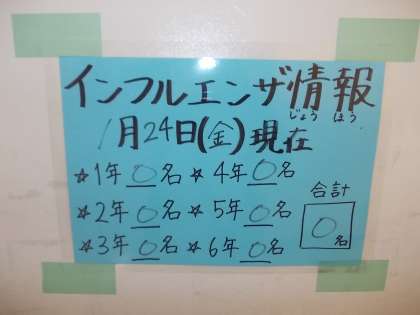 インフルエンザ情報
じょう ほう
1月24日(金)現在
☆1年 0名 ☆4年 0名
☆2年 0名 ☆5年 0名
☆3年 0名 ☆6年 0名
合計
0名